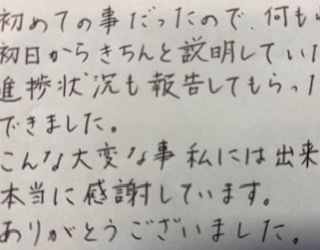 初めての事だったので、何も
初日からきちんと説明してい
進捗状況も報告してもらった
できました。
こんな大変な事私には出来
本当に感謝しています。
ありがとうございました。